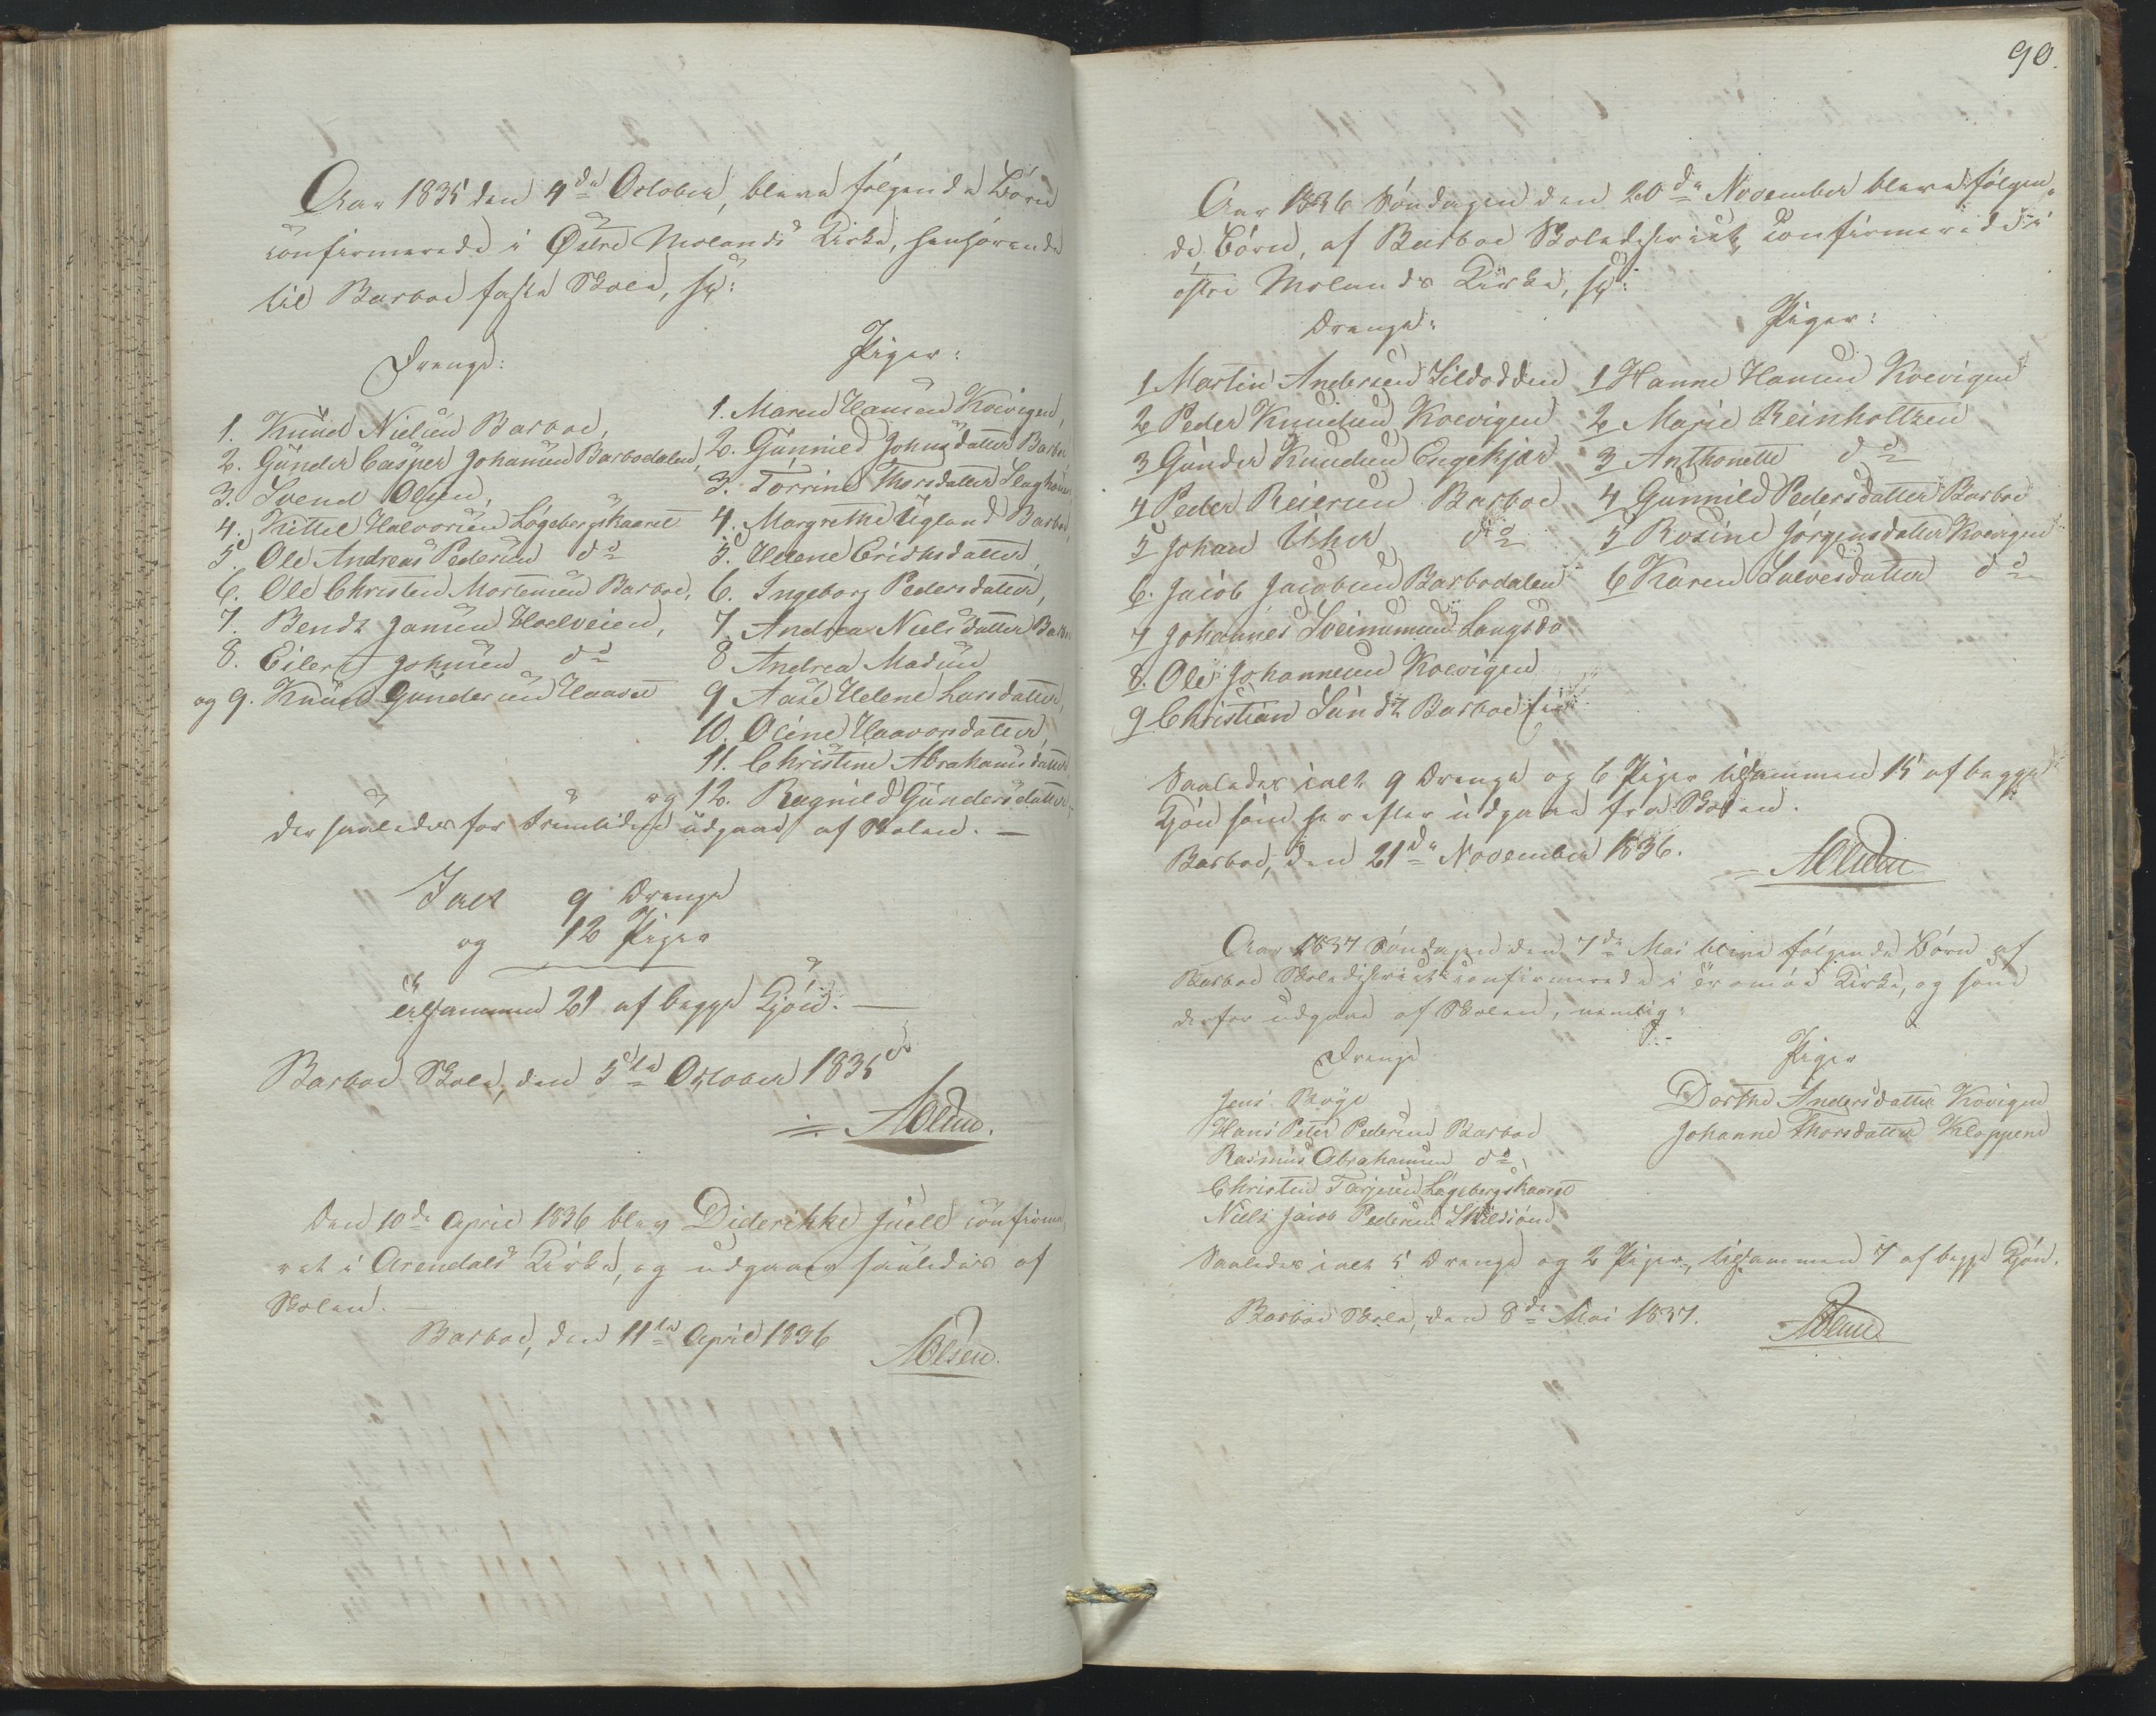 Aar 1835 den 4de October, bleve følgende Børn
confirmerede i Østre Molands Kirke, henhørende
til Barboe faste Skole, 
Drenge:
1. Knud Nielsen Barboe,
2. Gunder Casper Johansen Barbodalen,
3. Svend Olsen,
4. Kittel Halvorsen Løgebergskaaret
5. Ole Andreas Pedersen do
6. Ole Christen Mortensen Barboe,
7. Bendt Jansen Hoelveien,
8. Eilert Johnsen do
og 9. Knud Gundersen Haavet
Piger:
1. Maren Hansen Koevigen,
2. Gunnild Johnsdatter Barboe
3. Torrine Thorsdatter
4. Margrethe Ugland Barboe,
5. Helene Erichsdatter,
6. Ingeborg Pedersdatter,
7. Andrea Nielsdatter Barboe
8 Andrea Madsen
9 Aase Helene Larsdatter,
10. Oline Haavorsdatter,
11. Christine Abrahamsdatter
og 12. Ragnild Gundersdatter,
der saaledes for Fremtiden udgaae af Skolen. —
Ialt 9 Drenge
og 12 Piger
tilsammen 21 af begge Kjøn. —
Barboe Skole, den 5te October 1835
AOlsen.
Den 10de April 1836 blev Diderikke Juell confirme-
ret i Arendals Kirke, og udgaaer saaledes af
Skolen. —
Barboe, den 11te April 1836
AOlsen.
90.
Aar 1836 Søndagen den 20de November bleve følgen-
de Børn, af Barboe Skoledistrict, confirmerede i
østre Molands Kirke, 
Drenge:
1 Martin Andersen Sildodden
2 Peder Knudsen Koevigen
3 Gunder Knudsen Engekjær
4 Peder Reiersen Barboe
5 Johan Uher do
6. Jacob Jacobsen Barbodalen
7 Johannes Sveinumsen Langsæ
8. Ole Johannesen Koevigen
9 Christian Lundt Barboe
Piger:
1 Hanne Hansen Koevigen
2 Marie Reinholtzen
3 Anthonette do
4 Gunnild Pedersdatter Barboe
5 Rosine Jørgensdatter Koevigen
6 Karen Salvesdatter do
Saaledes ialt 9 Drenge og 6 Piger tilsammen 15 af begge
Kjøn som herefter udgaae fra Skolen.
Barboe, den 21de November 1836.
AOlsen
Aar 1837 Søndagen den 7de Mai bleve følgende Børn af
Barboe Skoledistrict confirmerede i Tromøe Kirke, og som
derfor udgaae af Skolen, nemlig:
Drenge
Jens Bøge
Hans Peter Pedersen Barboe
Rasmus Abrahamsen do
Christen Tarjesen Løgebergskaaret
Niels Jacob Pedersen
Piger
Dorthe Andersdatter Kovigen
Johanne Thorsdatter Kloppene
Saaledes ialt 5 Drenge og 2 Piger, tilsammen 7 af begge Kjøn.
Barboe Skole, den 8de Mai 1837.
AOlsen